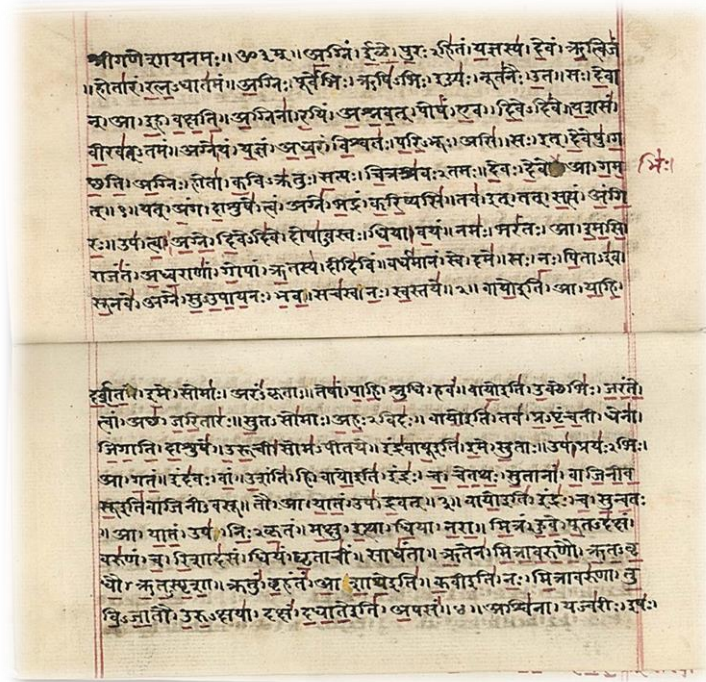 श्रीगणेशायनमः॥ ॐ३म्॥ अग्निं। ईळे। पुरःऽहितं। यज्ञस्य। देवं। ऋत्विजं
॥होतारं। रत्नऽधातमं॥ अग्निः। पूर्वेभिः। ऋषिऽभिः। ईड्यः। नूतनैः। उत॥ सः। देवा
न्। आ। इह। वक्षति॥ अग्निना। रयिं। अश्नवत्। पोषं। एव। दिवेऽदिवे॥ यशसं।
वीरवत्ऽतमं॥ अग्ने। यं। यज्ञं। अध्वरं। विश्वतः। परिऽभूः। असि॥ सः। इत्। देवेषु। ग
च्छति॥ अग्निः। होता। कविऽक्रतुः। सत्यः। चित्रश्रवःऽतमः॥ देवः। देवे आ। गम भिः।
त्॥१॥ यत्। अंग। दाशुषे। त्वं। अग्ने। भद्रं। करिष्यसि॥ तव। इत्। तत्। सत्यं। अंगि
रः॥ उप। त्वा। अग्ने। दिवेऽदिवे। दोषाऽवस्तः। धिया। वयं॥ नमः। भरंतः। आ। इमसि
राजंतं। अध्वराणां। गोपां। ऋतस्य। दीदिविं॥ वर्धमानं। स्वे। दमे॥ सः। नः। पिताऽइव
सूनवे। अग्ने। सुऽउपायनः। भव॥ सचस्व। नः। स्वस्तये॥२॥ वायोइति। आ। याहि।
दर्शत। इमे। सोमाः। अरंऽकृताः॥ तेषां। पाहि। श्रुधि। हवं॥ वायोइति। उक्थेभिः। जरंते
त्वां। अच्छ। जरितारः॥ सुतऽसोमाः। अहःऽविदः॥ वायोइति। तव। प्रऽपृंचती। धेना।
जिगाति। दाशुषे॥ उरूची। सोमऽपीतये॥ इंद्रवायूइति। इमे। सुताः॥ उप। प्रयःऽभिः।
आ। गतं॥ इंदवः। वां। उशंति। हि॥ वायोइति। इंद्रः। च। चेतथः। सुतानां। वाजिनीव
सूइतिवाजिनीऽवसू॥ तौ। आ। यातं। उप। द्रवत्॥३॥ वायोइति। इंद्रः। च। सुन्वतः
॥ आ। यातं। उप। निःऽकृतं॥ मक्षु। इत्था। धिया। नरा॥ मित्रं। हुवे। पूतऽदक्षं।
वरुणं। च। रिशादसं॥ धियं। घृताचीं। साधंता॥ ऋतेन। मित्रावरुणौ। ऋतऽवृ
धौ। ऋतऽस्पृशा॥ क्रतुं। बृहंतं। आ। शाथेइति॥ कवीइति। नः। मित्रावरुणा। तु
विऽजातौ। उरुऽक्षया॥ दक्षं। दधातेइति। अपसं॥४॥ अश्विना। यज्वरीः। इषः।